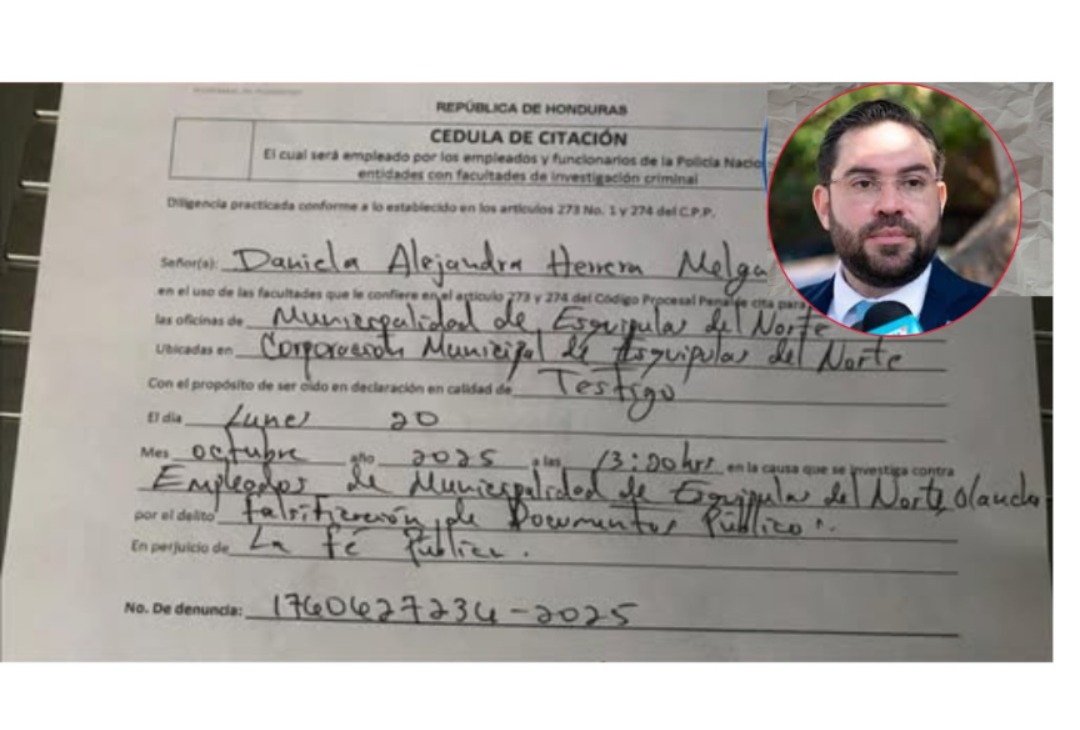 REPÚBLICA DE HONDURAS
CEDULA DE CITACIÓN
El cual será empleado por los empleados y funcionarios de la Policía Nacio
entidades con facultades de investigación criminal
Diligencia practicada conforme a lo establecido en los artículos 273 No. 1 y 274 del C.P.P.
Señor(a): Daniela Alejandra Herrera Melga
en el uso de las facultades que le confiere en el artículo 273 y 274 del Código Procesal Penal se cita para
las oficinas de Municipalidad de Esquipulas del Norte
Ubicadas en Corporación Municipal de Esquipulas del Norte
Con el propósito de ser oído en declaración en calidad de Testigo
El día Lunes 20
Mes octubre año 2025 a las 13:00 hrs en la causa que se investiga contra
Empleados de Municipalidad de Esquipulas del Norte, Olancho
por el delito falsificación de Documentos Públicos.
En perjuicio de La fé Pública.
No. De denuncia: 1760627234-2025